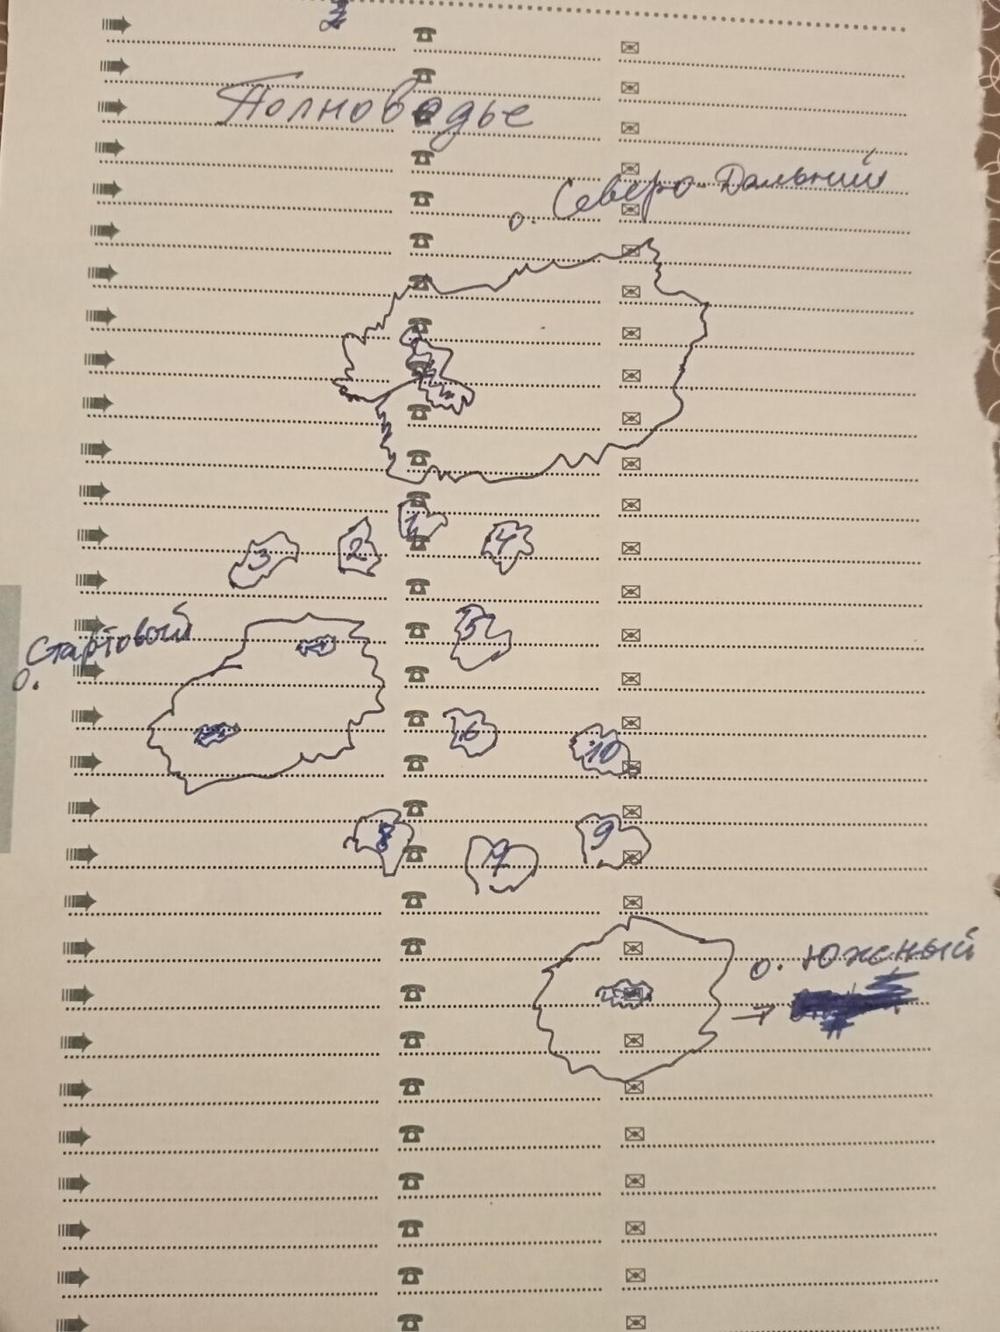 Полноводье
о. Северо-Дальний
1
3 2 4
5
о. Стартовый
6
10
8 7 9
о. Южный
→